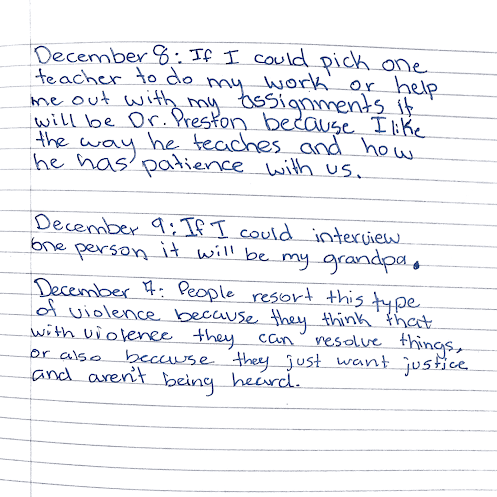 December 8: If I could pick one
teacher to do my work or help
me out with my assignments it
will be Dr. Preston because I like
the way he teaches and how
he has patience with us.
December 9: If I could interview
one person it will be my grandpa.
December 7: People resort this type
of violence because they think that
with violence they can resolve things,
or also because they just want justice
and aren't being heard.